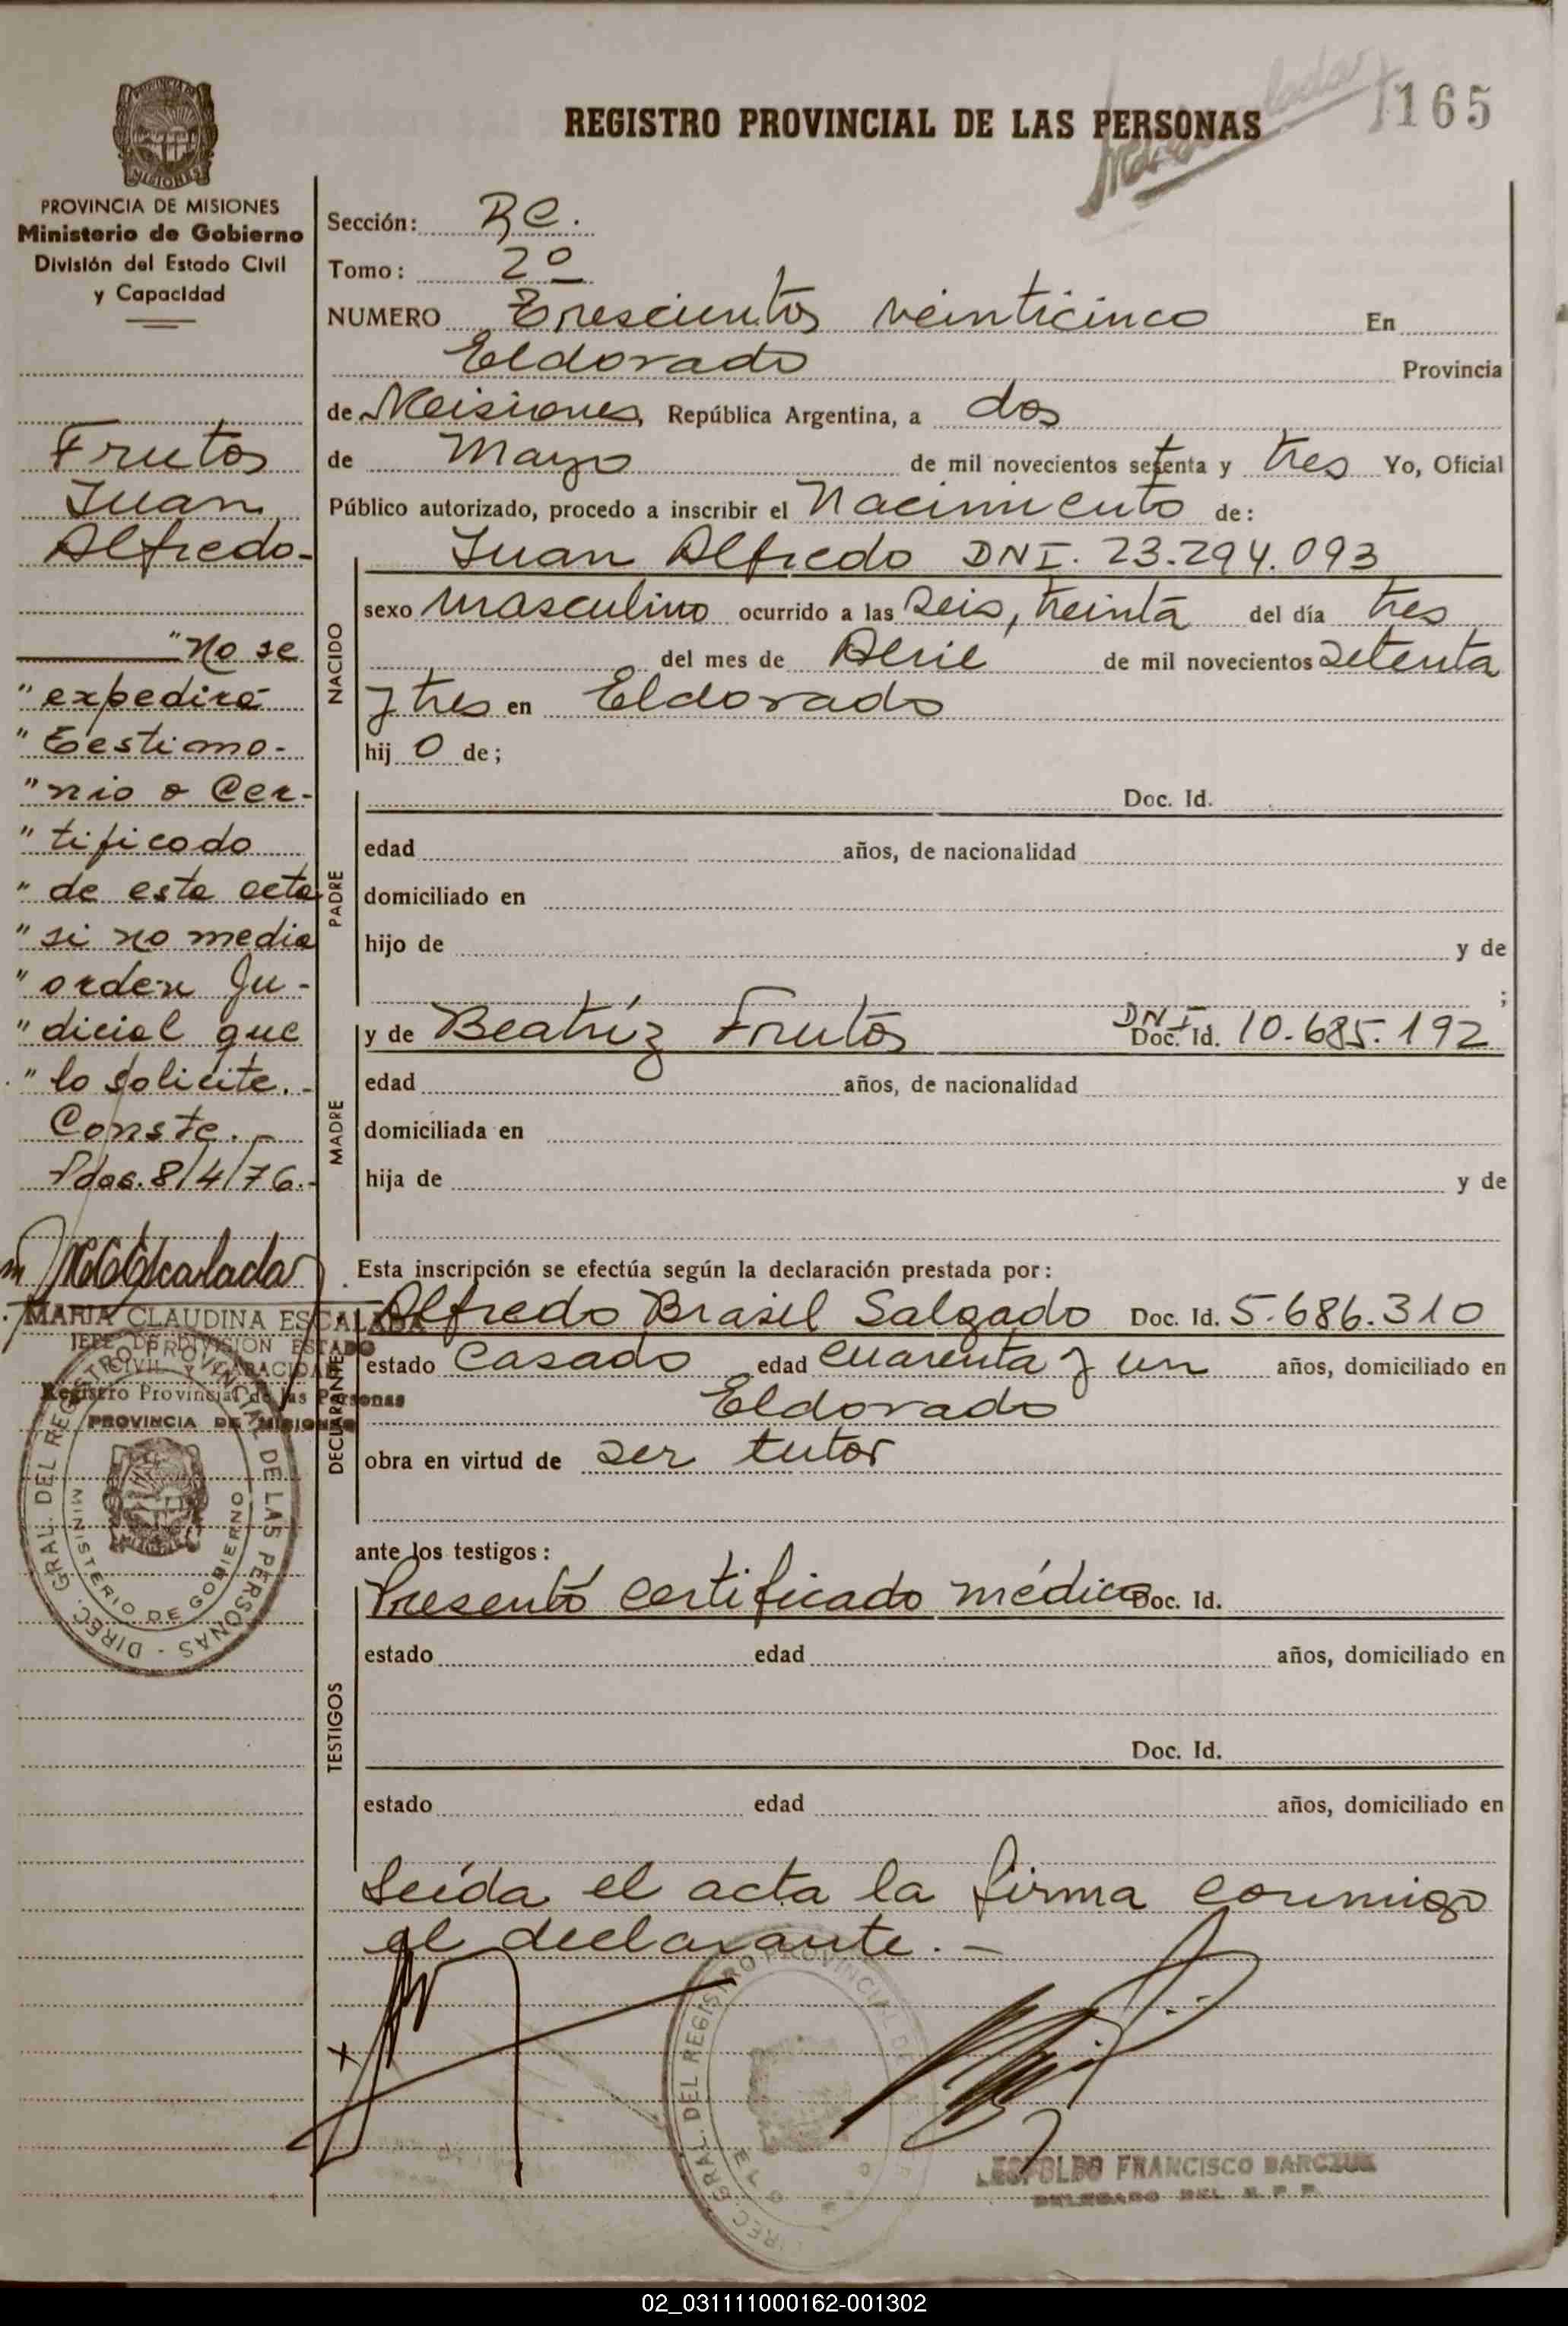 REGISTRO PROVINCIAL DE LAS PERSONAS
165
PROVINCIA DE MISIONES
Ministerio de Gobierno
División del Estado Civil
y Capacidad
Frutos
Juan
Alfredo-
"No se
"expedirá
"Testimo-
"nio o Cer-
"tificado
"de esta acta
"si no media
"orden Ju-
"dicial que
"lo solicite.-
Conste.-
Pdas. 8/4/76.-
MARIA CLAUDINA ESCALADA
JEFE DE DIVISION ESTADO
CIVIL Y CAPACIDAD
Registro Provincial de las Personas
PROVINCIA DE MISIONES
DIREC. GRAL. DEL REGISTRO PROVINCIAL DE LAS PERSONAS -
MINISTERIO DE GOBIERNO
Sección: RC.
Tomo: 2º
NUMERO Trescientos veinticinco En
Eldorado Provincia
de Misiones, República Argentina, a dos
de Mayo de mil novecientos setenta y tres Yo, Oficial
Público autorizado, procedo a inscribir el Nacimiento de:
NACIDO
Juan Alfredo DNI. 23.294.093
sexo masculino ocurrido a las seis, treinta del día tres
del mes de Abril de mil novecientos setenta
y tres en Eldorado
hij o de;
PADRE
Doc. Id.
edad años, de nacionalidad
domiciliado en
hijo de y de
;
MADRE
y de Beatríz Frutos DNI Doc. Id. 10.685.192
edad años, de nacionalidad
domiciliada en
hija de y de
Esta inscripción se efectúa según la declaración prestada por:
DECLARANTE
Alfredo Brasil Salgado Doc. Id. 5.686.310
estado casado edad cuarenta y un años, domiciliado en
Eldorado
obra en virtud de ser tutor
ante los testigos:
TESTIGOS
Presentó certificado médico Doc. Id.
estado edad años, domiciliado en
Doc. Id.
estado edad años, domiciliado en
Leída el acta la firma conmigo
el declarante.-
DIREC. GRAL. DEL REGISTRO PROVINCIAL DE
LEOPOLDO FRANCISCO BARCZUK
DELEGADO DEL R. P. P.
02_031111000162-001302